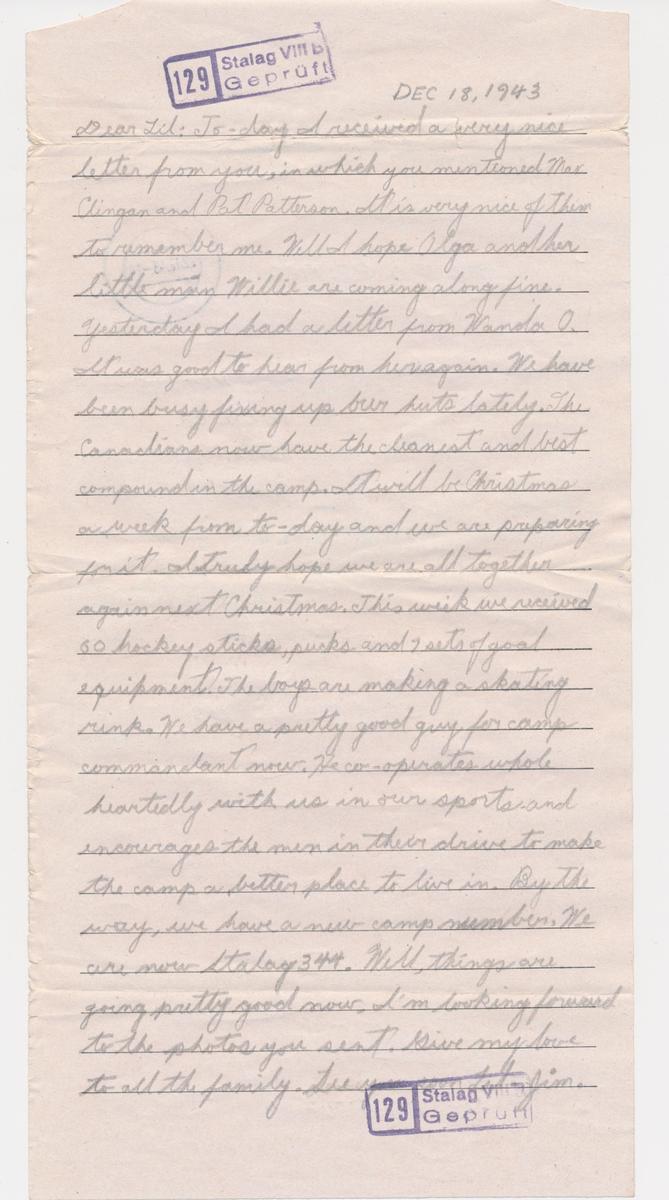 129 Stalag VIII b
Geprüft
DEC 18, 1943
Dear Lil: To-day I received a very nice
letter from you, in which you mentioned Max
Clingan and Pat Patterson. It is very nice of them
to remember me. Well I hope Olga and her
little man Willie are coming along fine.
Yesterday I had a letter from Wanda O.
It was good to hear from her again. We have
been busy fixing up our huts lately. The
Canadians now have the cleanest and best
compound in the camp. It will be Christmas
a week from to-day and we are preparing
for it. I truly hope we are all together
again next Christmas. This week we received
60 hockey sticks, pucks and 2 sets of goal
equipment. The boys are making a skating
rink. We have a pretty good guy for camp
commandant now. He co-operates whole
heartedly with us in our sports and
encourages the men in their drive to make
the camp a better place to live in. By the
way, we have a new camp number. We
are now Stalag 344. Well, things are
going pretty good now. I'm looking forward
to the photos you sent. Give my love
to all the family. See you soon Jim.
129 Stalag VIII
Geprüft